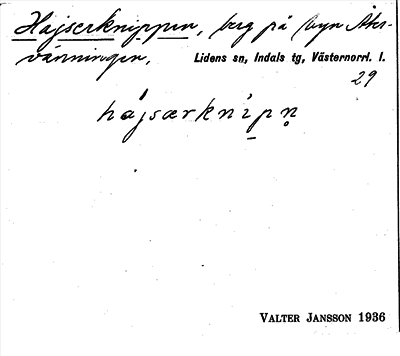 Hajserknippen, berg på byn Åter-
vänningen, Lidens sn, Indals tg, Västernorrl. l.
29
hájsærknìpn̥
VALTER JANSSON 1936